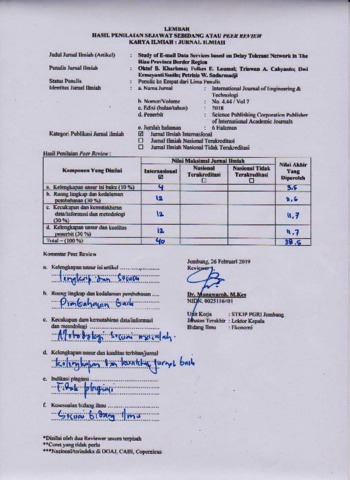 LEMBAR
HASIL PENILAIAN SEJAWAT SEBIDANG ATAU PEER REVIEW
KARYA ILMIAH : JURNAL ILMIAH
Judul Jurnal Ilmiah (Artikel) : Study of E-mail Data Services based on Delay Tolerant Network in The
Riau Province Border Region
Penulis Jurnal Ilmiah : Okfaf B. Kharisma; Folkes E. Laumal; Triawan A. Cahyanto; Dwi
Ermayanti Susilo; Petrisia W. Sudarmadji
Status Penulis : Penulis ke Empat dari Lima Penulis
Identitas Jurnal Ilmiah : a. Nama Jurnal : International Journal of Engineering &
Technologi
b. Nomor/Volume : No. 4.44 / Vol 7
c. Edisi (bulan/tahun) : 2018
d. Penerbit : Science Publishing Corporation Publisher
of International Academic Journals
e. Jumlah halaman : 6 Halaman
Kategori Publikasi Jurnal Ilmiah : ☑ Jurnal Ilmiah Internasional
☐ Jurnal Ilmiah Nasional Terakreditasi
☐ Jurnal Ilmiah Nasional Tidak Terakreditasi
Hasil Penilaian Peer Review :
Komponen Yang Dinilai
Nilai Maksimal Jurnal Ilmiah
Nilai Akhir Yang Diperoleh
Internasional ☑
Nasional Terakreditasi ☐
Nasional Tidak Terakreditasi ☐
a. Kelengkapan unsur isi buku (10 %) 4 3.5
b. Ruang lingkup dan kedalaman
pembahasan (30 %) 12
c. Kecukupan dan kemutakhiran
data/informasi dan metodologi
(30 %) 12 11,7
d. Kelengkapan unsur dan kualitas
penerbit (30 %) 12 11.7
Total = (100 %) 40 38.5
Komentar Peer Review
Jombang, 26 Februari 2019
Reviewer
a. Kelengkapan unsur isi artikel
Lengkap dan sesuai
b. Ruang lingkup dan kedalaman pembahasan
Pembahasan baik
Dr. Munawaroh, M.Kes
NIDN. 0025116401
Unit Kerja : STKIP PGRI Jombang
Jabatan Terakhir : Lektor Kepala
Bidang Ilmu : Ekonomi
c. Kecukupan dan kemutakhiran data/informasi
dan metodologi
Metodologi sesuai masalah
d. Kelengkapan unsur dan kualitas terbitan/jurnal
Kelengkapan dan kualitas jurnal baik
e. Indikasi plagiasi
Tidak plagiasi
f. Kesesuaian bidang ilmu
Sesuai bidang ilmu
*Dinilai oleh dua Reviewer secara terpisah
**Coret yang tidak perlu
***Nasional/terindeks di DOAJ, CABI, Copernicus